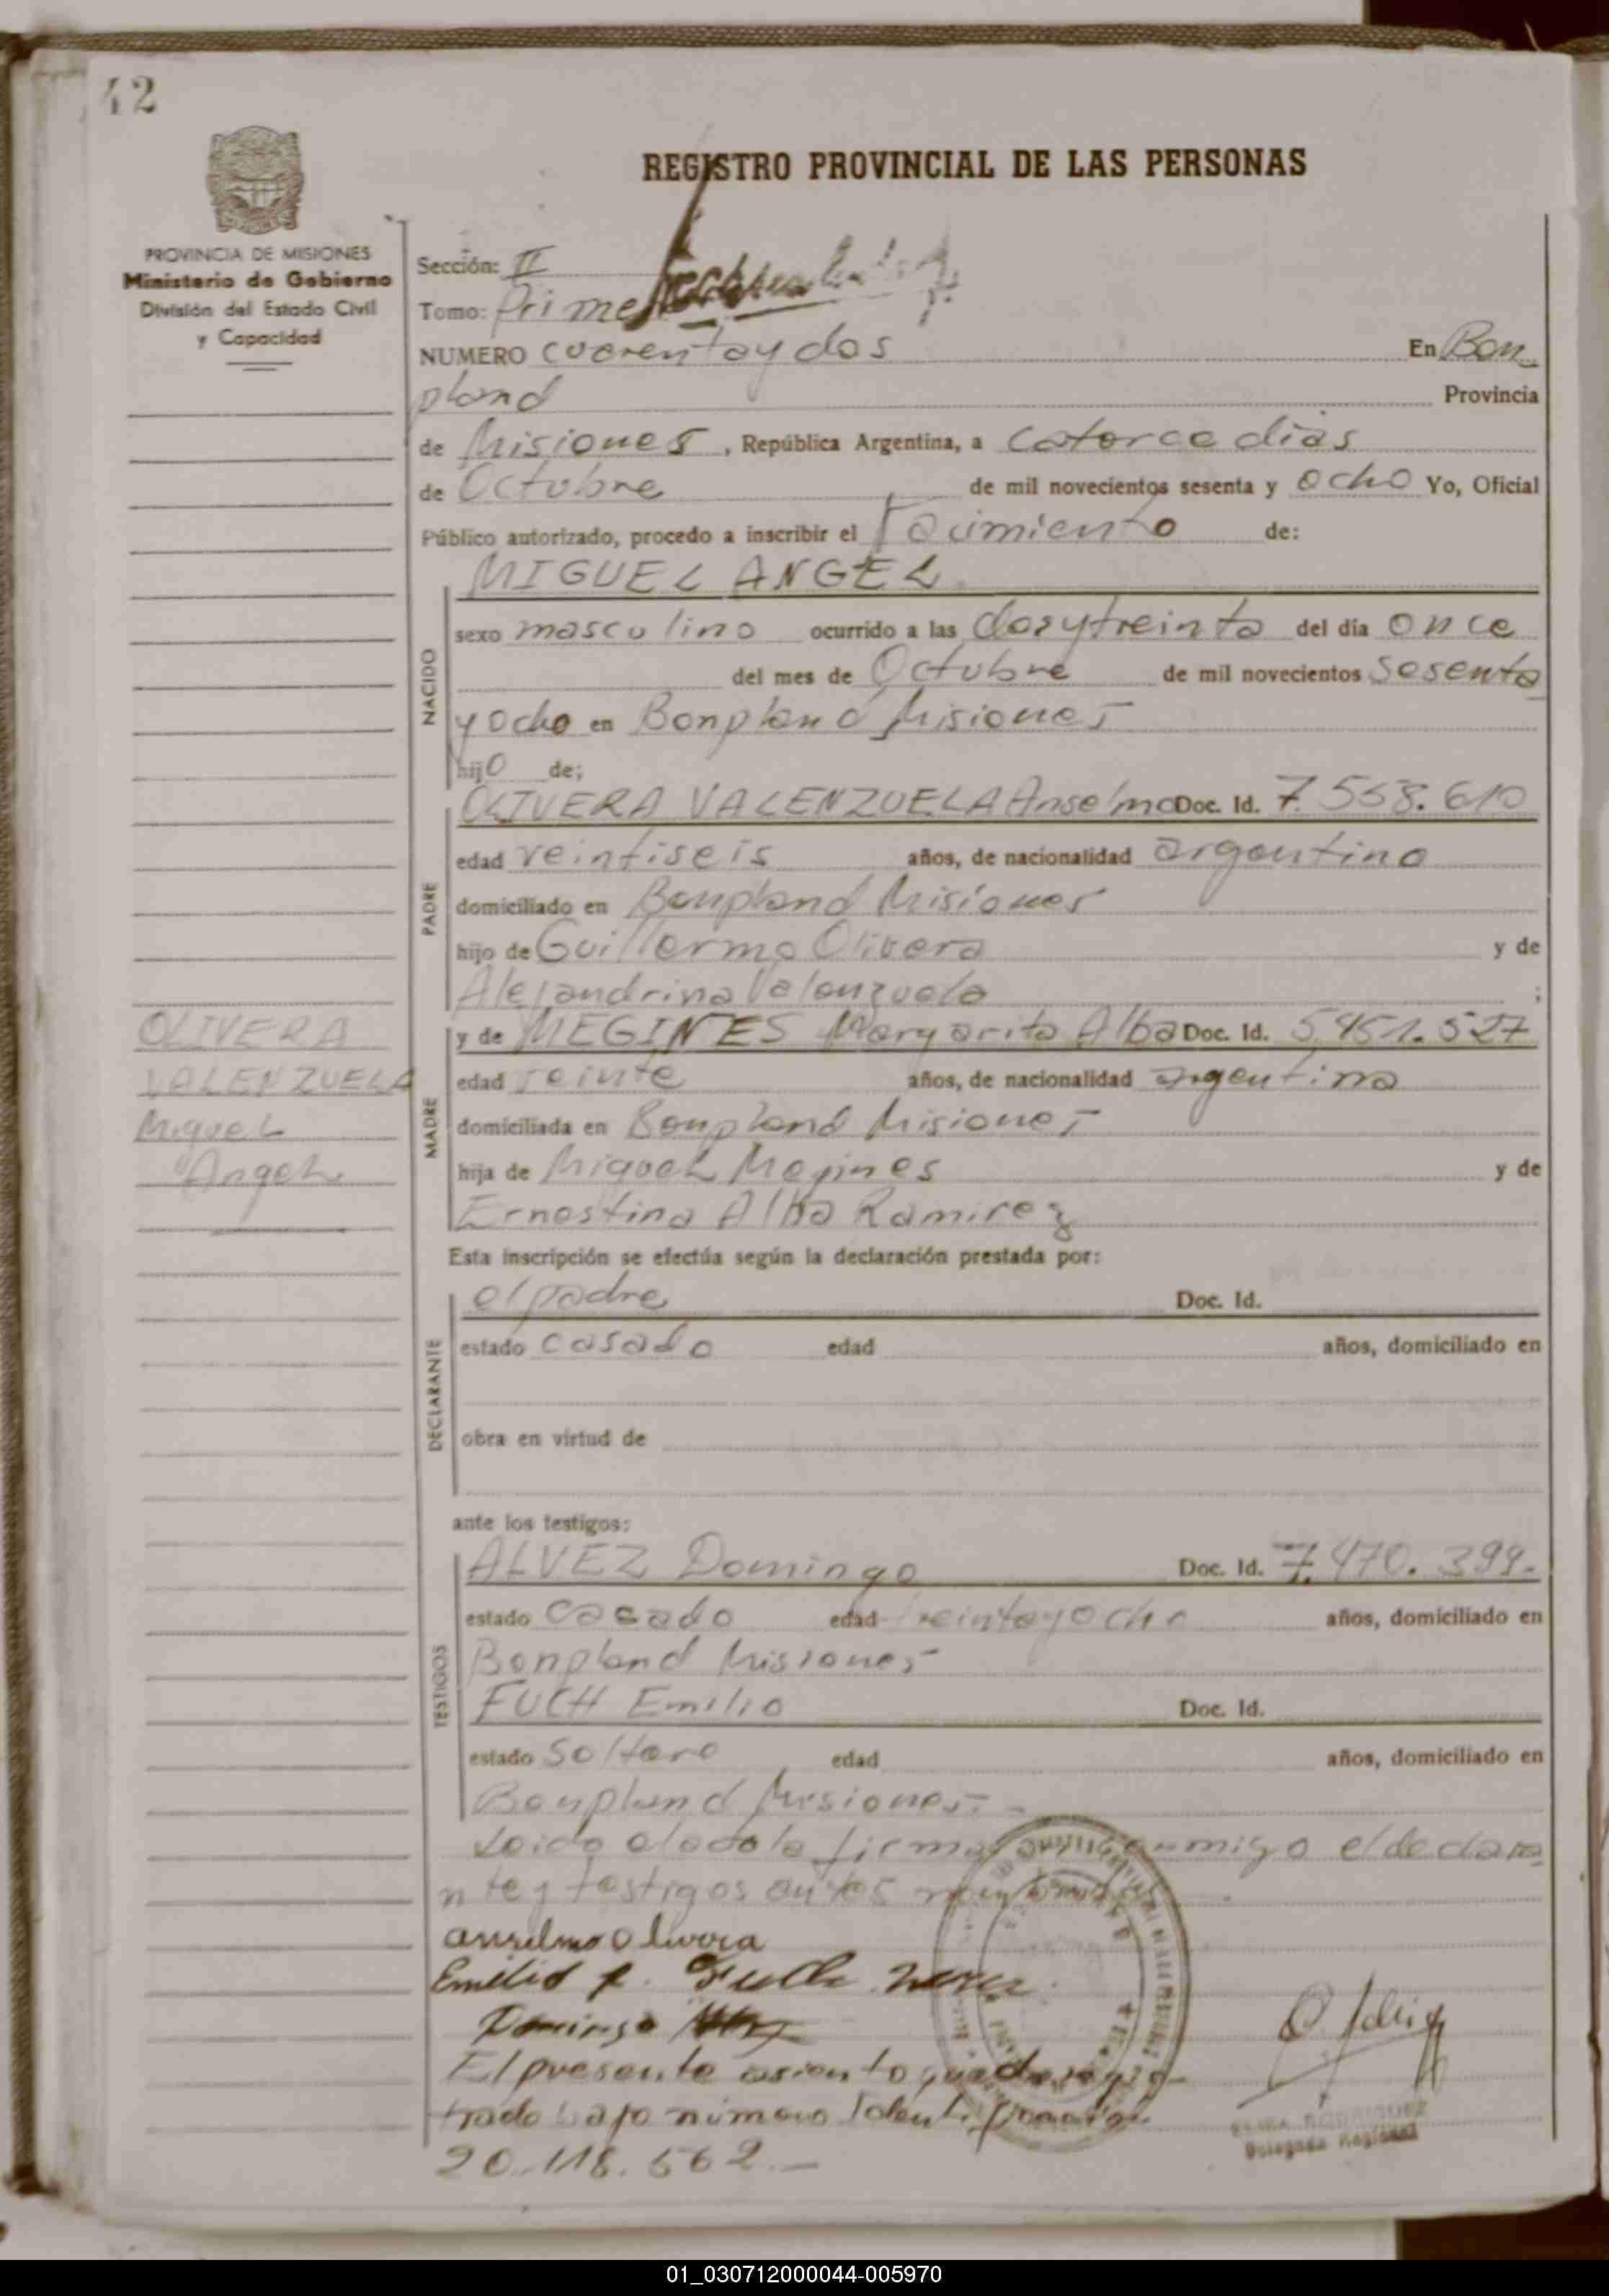 42
REGISTRO PROVINCIAL DE LAS PERSONAS
PROVINCIA DE MISIONES
Ministerio de Gobierno
División del Estado Civil
y Capacidad
Sección: II
Tomo: Primero
NUMERO cuarentaydos En Bon
pland Provincia
de Misiones, República Argentina, a catorce dias
de Octubre de mil novecientos sesenta y ocho Yo, Oficial
Público autorizado, procedo a inscribir el Nacimiento de:
NACIDO
MIGUEL ANGEL
sexo masculino ocurrido a las dosytreinta del día once
del mes de Octubre de mil novecientos sesenta
y ocho en Bonpland Misiones
hijo de;
PADRE
OLIVERA VALENZUELA Anselmo Doc. Id. 7.558.610
edad veintiseis años, de nacionalidad argentino
domiciliado en Bonpland Misiones
hijo de Guillermo Olivera y de
Alejandrina Valenzuela ;
OLIVERA
VALENZUELA
Miguel
Angel
MADRE
y de MEGINES Margarita Alba Doc. Id. 5.951.527
edad veinte años, de nacionalidad argentina
domiciliada en Bonpland Misiones
hija de Miguel Megines y de
Ernestina Alba Ramirez
Esta inscripción se efectúa según la declaración prestada por:
DECLARANTE
el padre Doc. Id.
estado casado edad años, domiciliado en
obra en virtud de
ante los testigos:
TESTIGOS
ALVEZ Domingo Doc. Id. 7.470.399.
estado casado edad treintayocho años, domiciliado en
Bonpland Misiones
FUCH Emilio Doc. Id.
estado soltero edad años, domiciliado en
Bonpland Misiones
Leida el acta la firman conmigo el declara
nte y testigos
Anselmo Olivera
Emilio
Domingo
El presente asiento queda regis
trado bajo número
20.118.562.—
Delegada Regional
01_030712000044-005970